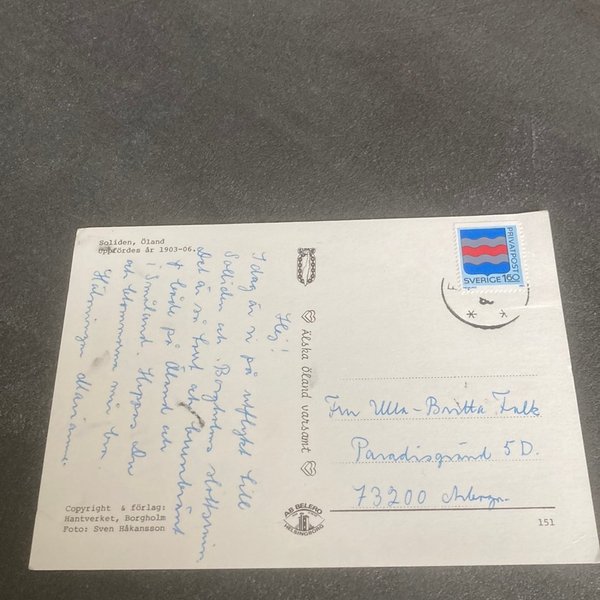 Soliden, Öland
Uppfördes år 1903-06.
Hej!
Idag är vi på utflykt till
Solliden och Borgholms slottsruin
Det är så fint och
både på Öland och
i Småland. Hoppas Du
och blommorna mår bra.
Hälsningar Marianne
Copyright & förlag:
Hantverket, Borgholm
Foto: Sven Håkansson
Älska Öland varsamt
AB BELERO
HELSINGBORG
PRIVATPOST
SVERIGE 160
Fru Ulla-Britta Falk
Paradisgränd 5 D.
73200 Arboga
151